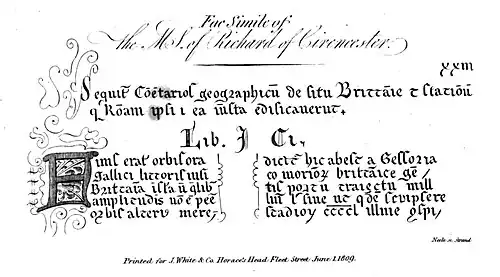 Fac Simile of
the MS. of Richard of Cirencester.
xxııı
Sequit Cōetariol geographicū de situ Brittāie t statioñ
q Rōani ipsi i ea iusta edificaverūt.
Lib. I Ci.
Finis erat orbis ora
Gallici littoris nisi
Britēnia isła ū q̄lib
amplitudis nō ē pee
orbis alteri mere,
dictē hic abest a Gessoria
co morioʒ britānice gē
tis portu traiectu mill
ut scripsere
stadioʒ ccccl illnie
Neele sc. Strand
Printed for J. White & Co. Horace's Head Fleet Street June 1. 1809.